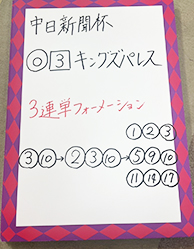 中日新聞杯
◎ 3 キングズパレス
3連単フォーメーション
①②③
③⑩→②③⑩→⑤⑨⑩
⑪⑭⑰